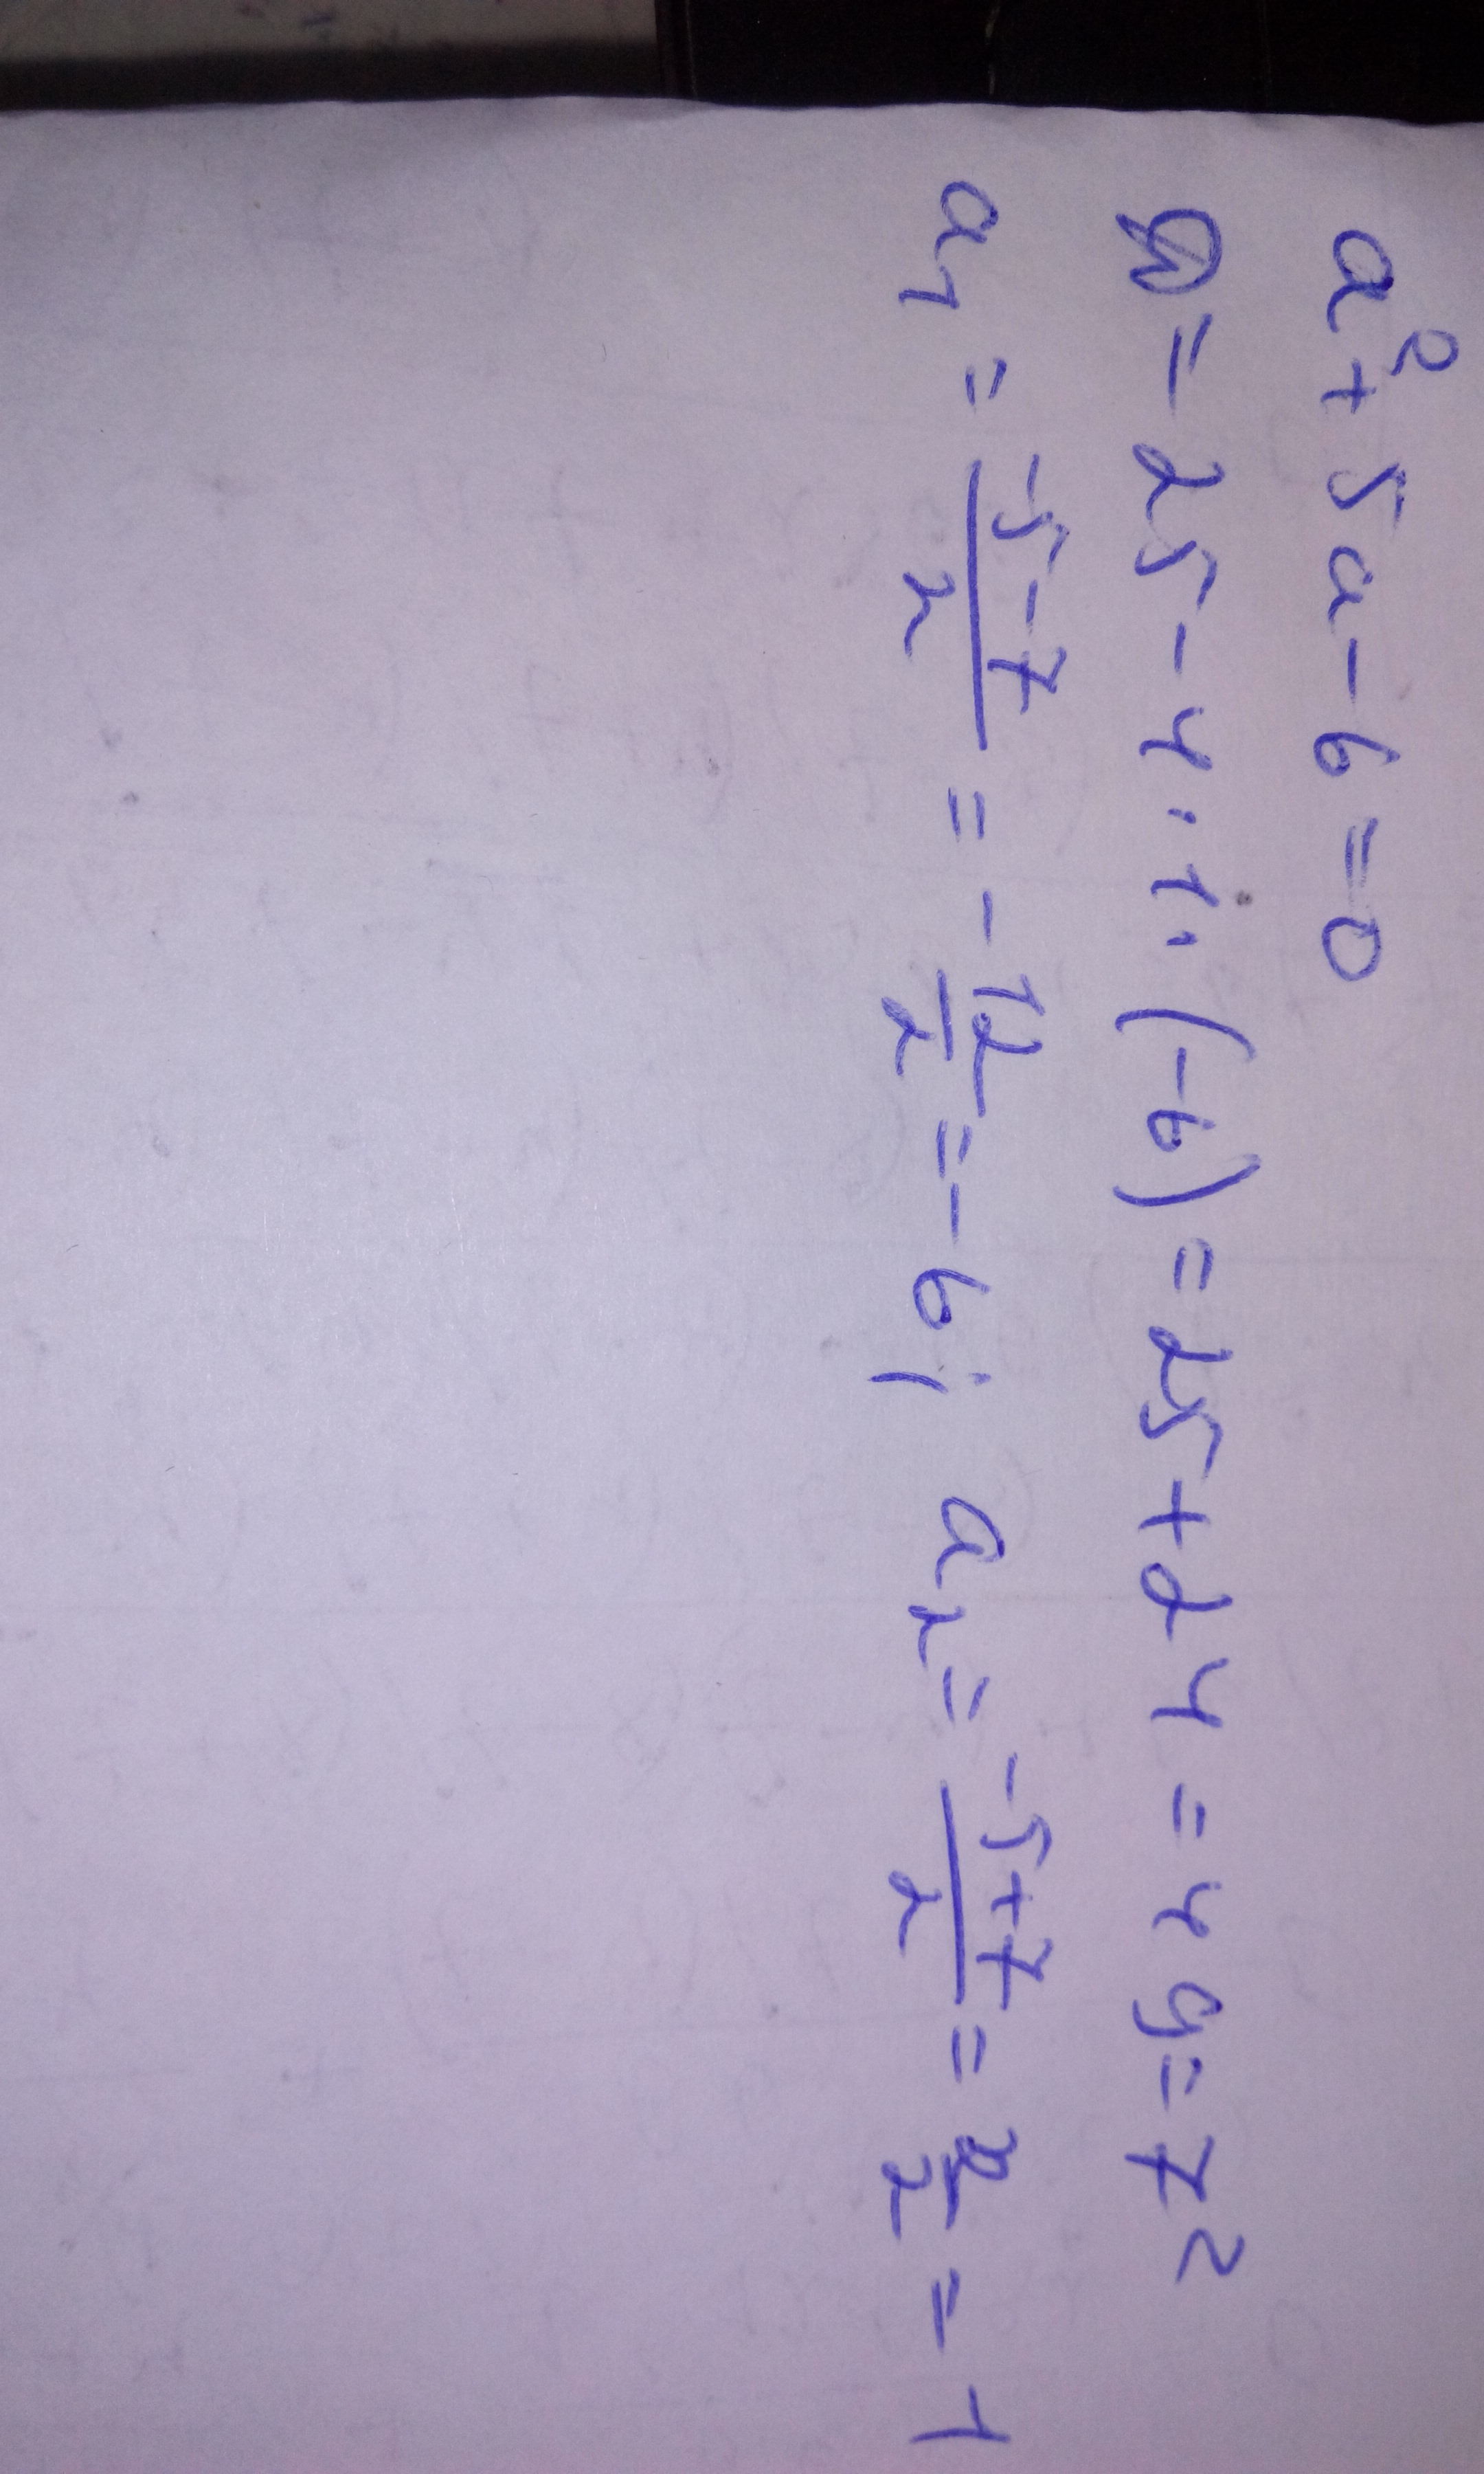 a² + 5a - 6 = 0
D = 25 - 4 · 1 · (-6) = 25 + 24 = 49 = 7²
a₁ = (-5 - 7)/2 = -12/2 = -6; a₂ = (-5 + 7)/2 = 2/2 = 1